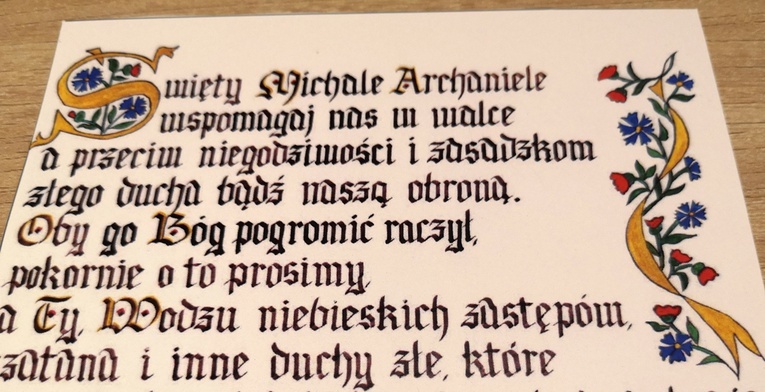 Święty Michale Archaniele
wspomagaj nas w walce
a przeciw niegodziwości i zasadzkom
złego ducha bądź naszą obroną.
Oby go Bóg pogromić raczył,
pokornie o to prosimy,
a Ty, Wodzu niebieskich zastępów,
szatana i inne duchy złe, które